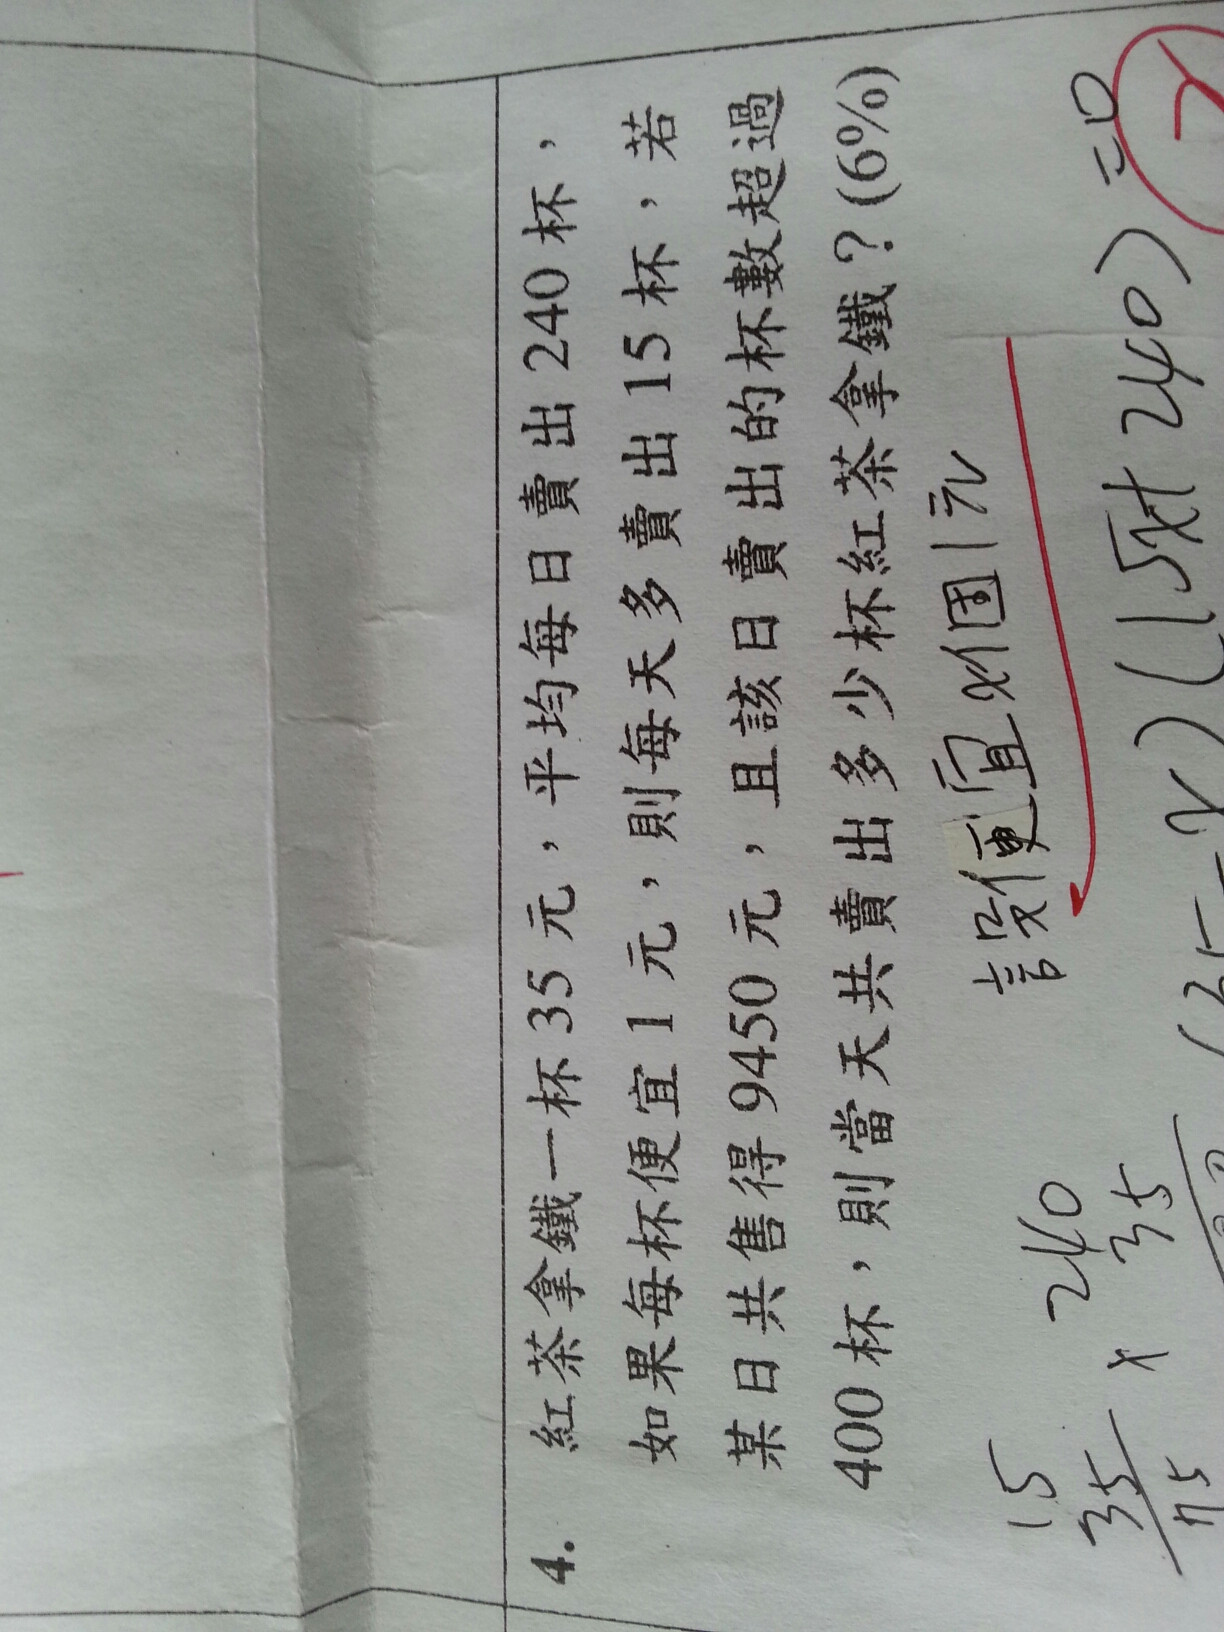 4. 紅茶拿鐵一杯 35 元，平均每日賣出 240 杯，
如果每杯便宜 1 元，則每天多賣出 15 杯，若
某日共售得 9450 元，且該日賣出的杯數超過
400 杯，則當天共賣出多少杯紅茶拿鐵？(6%)
設便宜x個1元
(35-x)(15x+240)=0
15
35
75
240
× 35